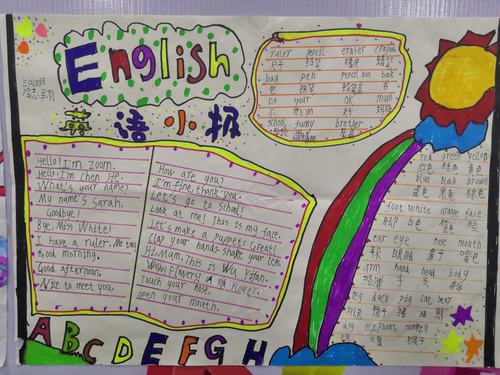 English
英语小报
Hello! I'm Zoom.
Hello, I'm Chen He.
What's your name?
My name's Sarah.
Goodbye!
Bye, Miss White!
I have a ruler. Me too!
Good morning.
Good afternoon.
Nice to meet you.
How are you?
I'm fine, thank you.
Let's go to
Look at me! This is my face.
Let's make a puppet! Great!
Clap your hands, shake your
Hi, Mum, This is Wu Yifan.
Wow! Flowers!
Touch your nose.
open your mouth.
ruler pencil eraser crayon
尺子 铅笔 橡皮 蜡笔
bag pen pencil box book
包 钢笔 铅笔盒 书
no your OK mum
不 你的 好 妈妈
school funny brother
red green yellow
红色 绿色 黄色
blue black brown
蓝色 黑色 棕色
foot white orange face
脚 白色 橙色 脸
ear eye nose mouth
耳朵 眼睛 鼻子 嘴巴
arm hand head body
胳膊 手 头 身体
duck pig cat bear
鸭子 猪 猫 熊
dog elephant monkey
狗 大象 猴子
A B C D E F G H